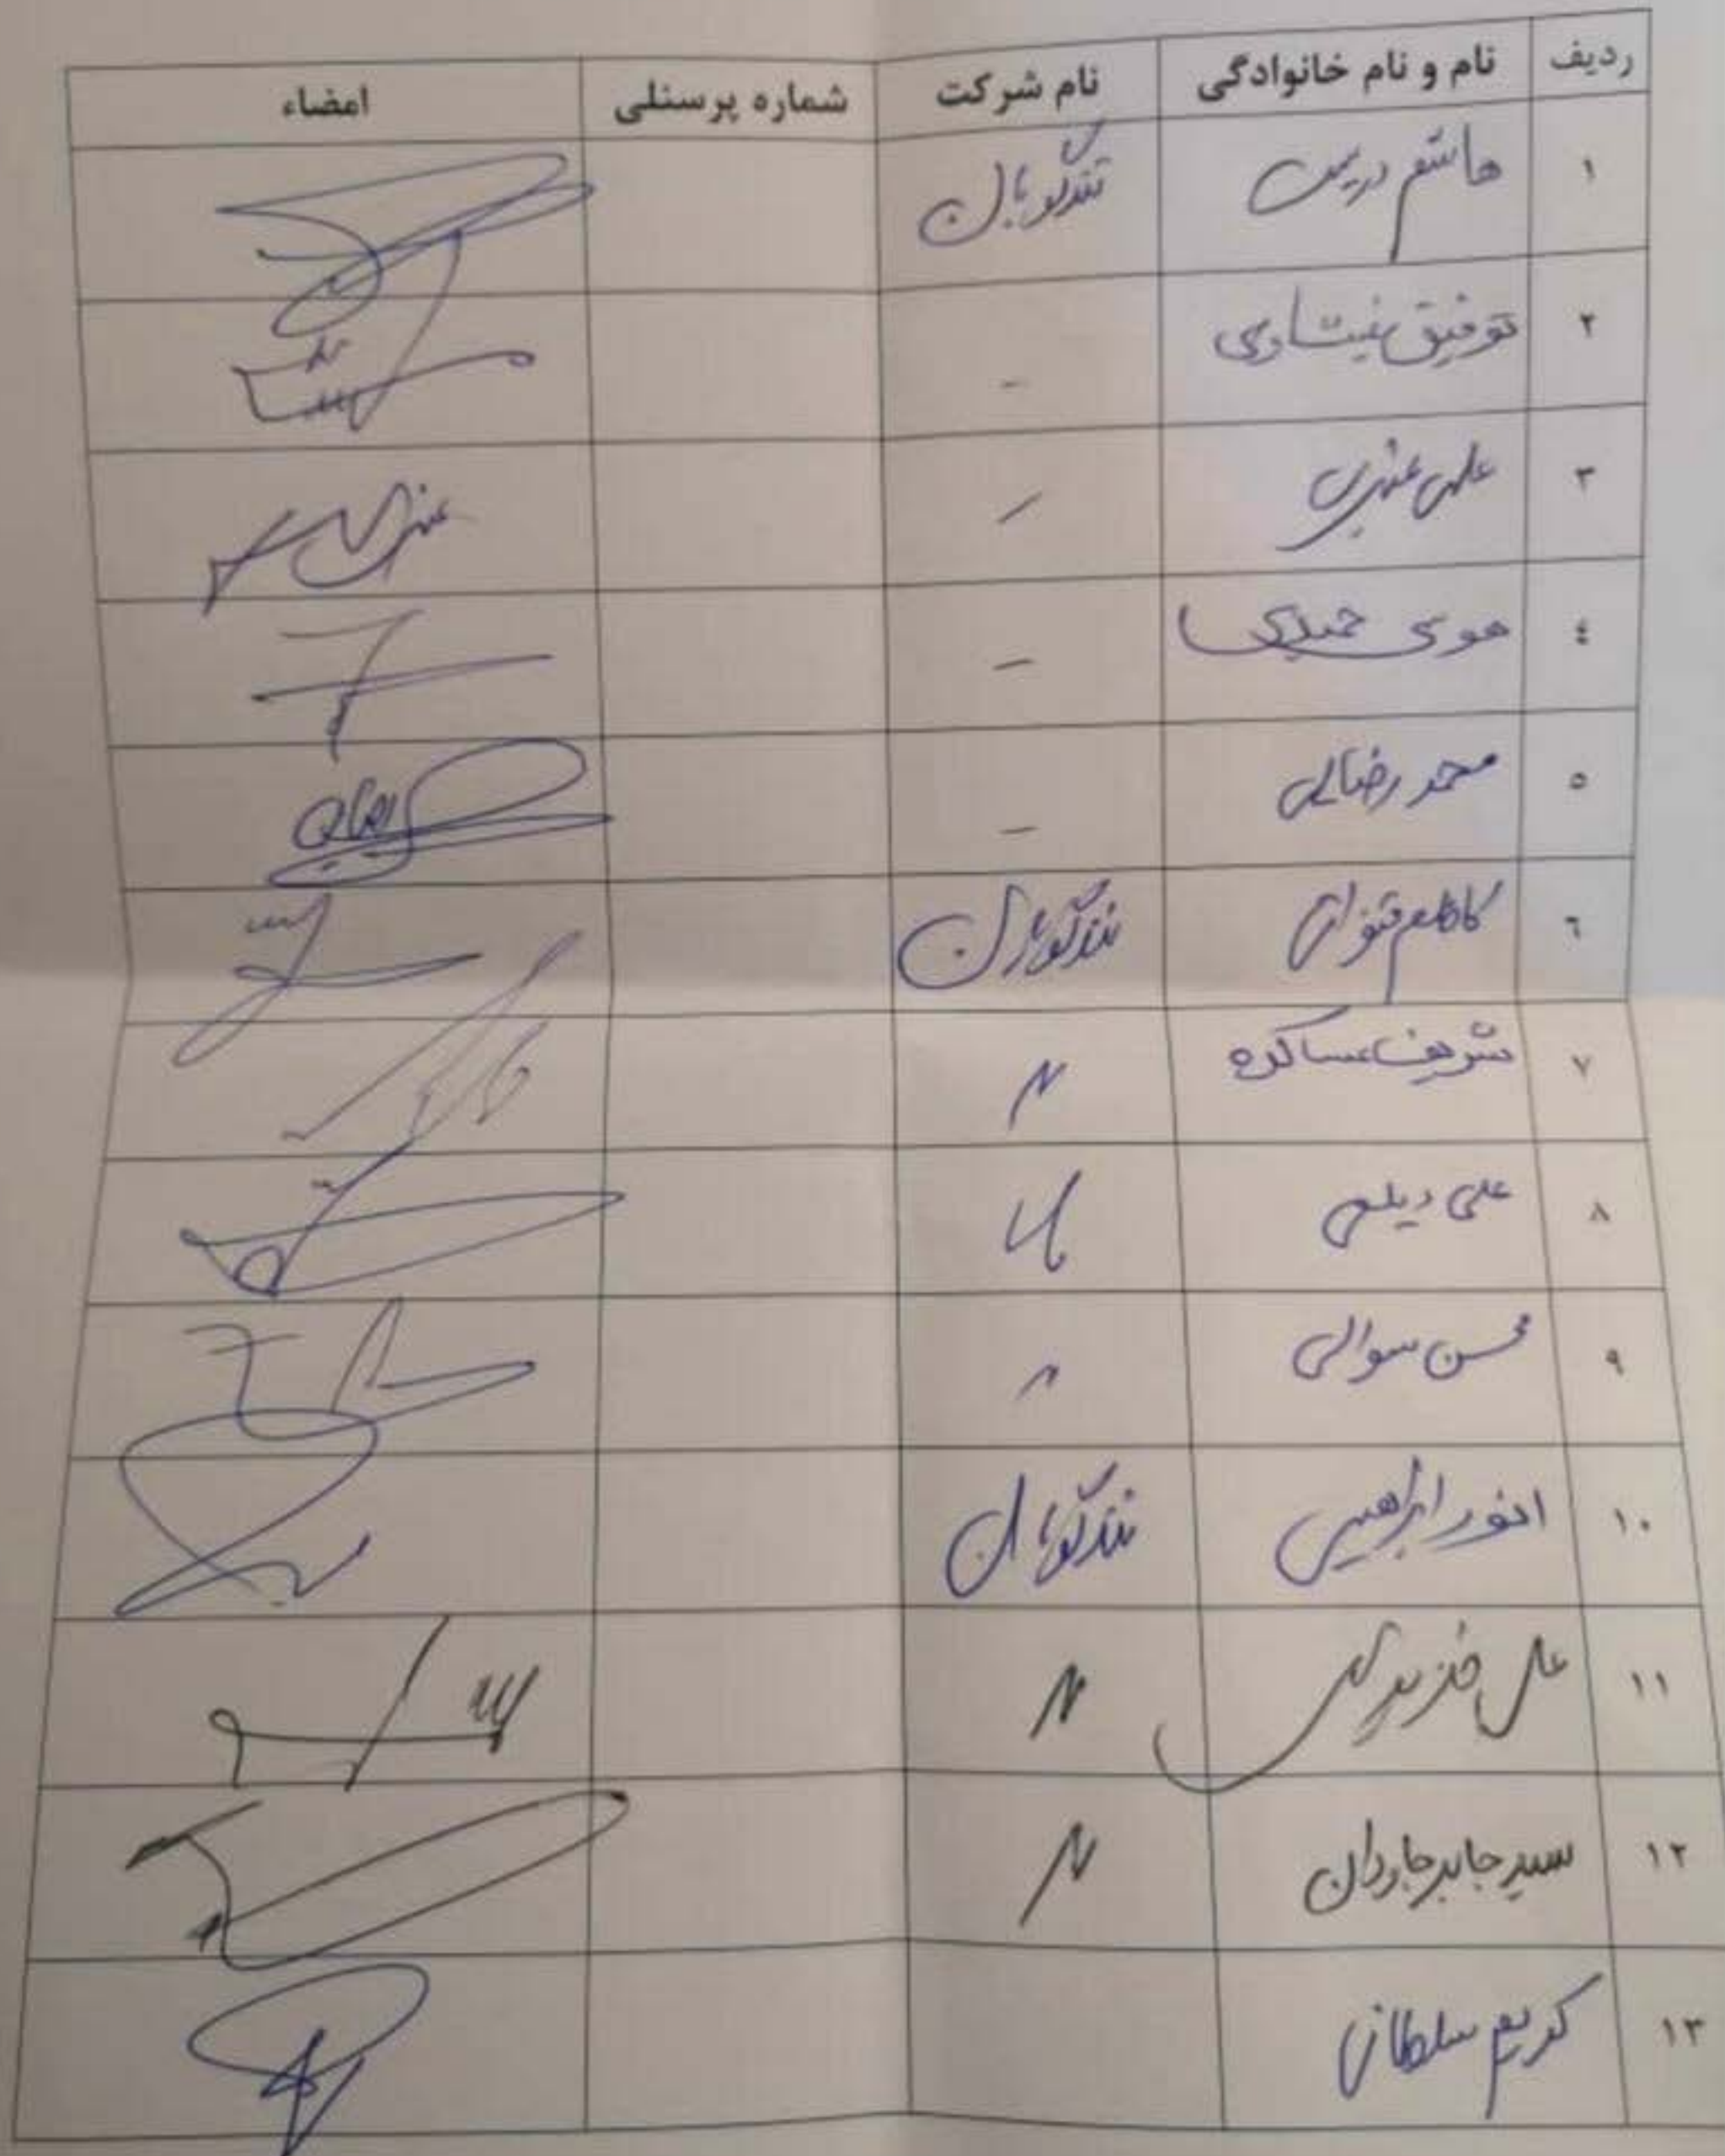 ردیف نام و نام خانوادگی نام شرکت شماره پرسنلی امضاء
۱ هاشم دریس تندگویان
۲ توفیق -
۳ علی عنبری -
٤ موسی حمیدی -
٥ محمد رضایی -
٦ کاظم تندگویان
۷ شریف عساکره 〃
۸ علی دیلمی 〃
۹ محسن سوالی 〃
۱۰ انور ابراهیمی تندگویان
۱۱ علی 〃
۱۲ سید جابر جاودان 〃
۱۳ کریم سلطانی